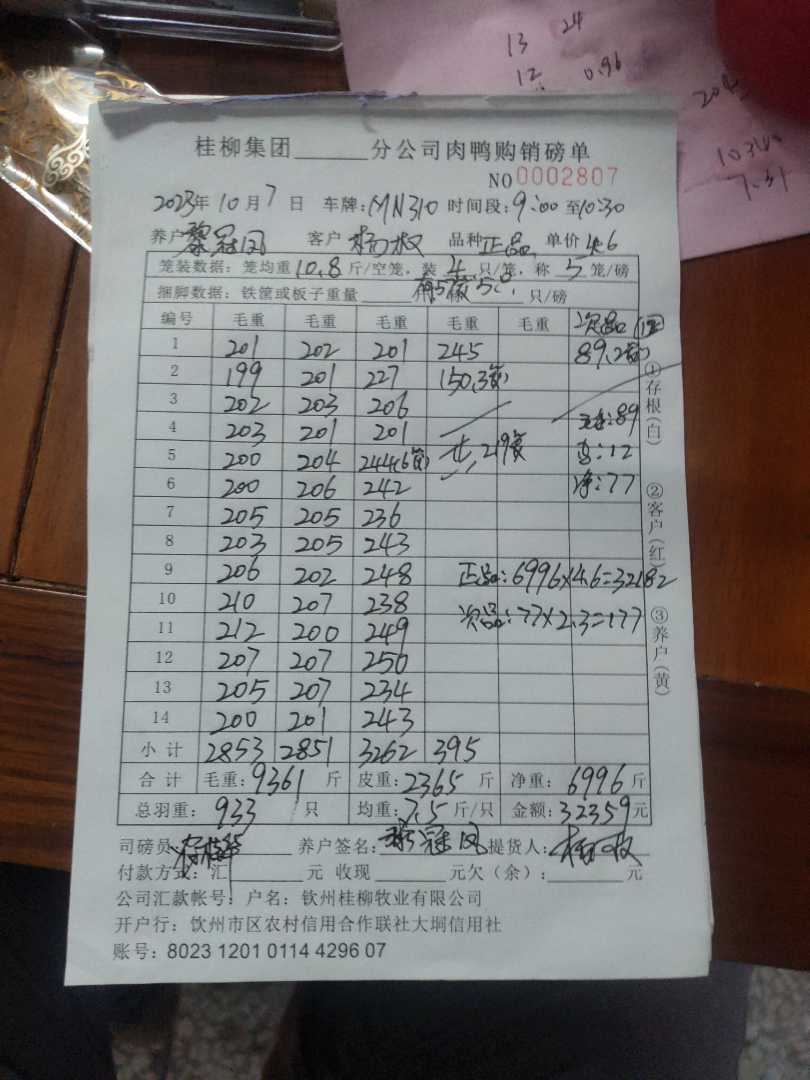 13 24
12 0.96
桂柳集团______分公司肉鸭购销磅单
NO 0002807
2023年10月7日 车牌:MN310 时间段:9:00至10:30
养户 黎冠凤 客户 杨权 品种 正品 单价 4.6
笼装数据: 笼均重10.8斤/空笼, 装4只/笼, 称5笼/磅
捆脚数据: 铁筐或板子重量 只/磅
编号 毛重 毛重 毛重 毛重 毛重 次品
1 201 202 201 245 89
2 199 201 227 150
3 202 203 206
4 203 201 201 89
5 200 204 244 219 12
6 200 206 242 净:77
7 205 205 236
8 203 205 243
9 206 202 248 正品:6996×4.6=32182
10 210 207 238 次品:77×2.3=177
11 212 200 249
12 207 207 250
13 205 207 234
14 200 201 243
小计 2853 2851 3262 395
合计 毛重:9361斤 皮重:2365斤 净重:6996斤
总羽重:933只 均重:7.5斤/只 金额:32359元
司磅员 养户签名: 提货人:
付款方式:汇______元 收现______元欠(余):______元
公司汇款帐号: 户名: 钦州桂柳牧业有限公司
开户行: 饮州市区农村信用合作联社大垌信用社
账号: 8023 1201 0114 4296 07
①存根(白)
②客户(红)
③养户(黄)